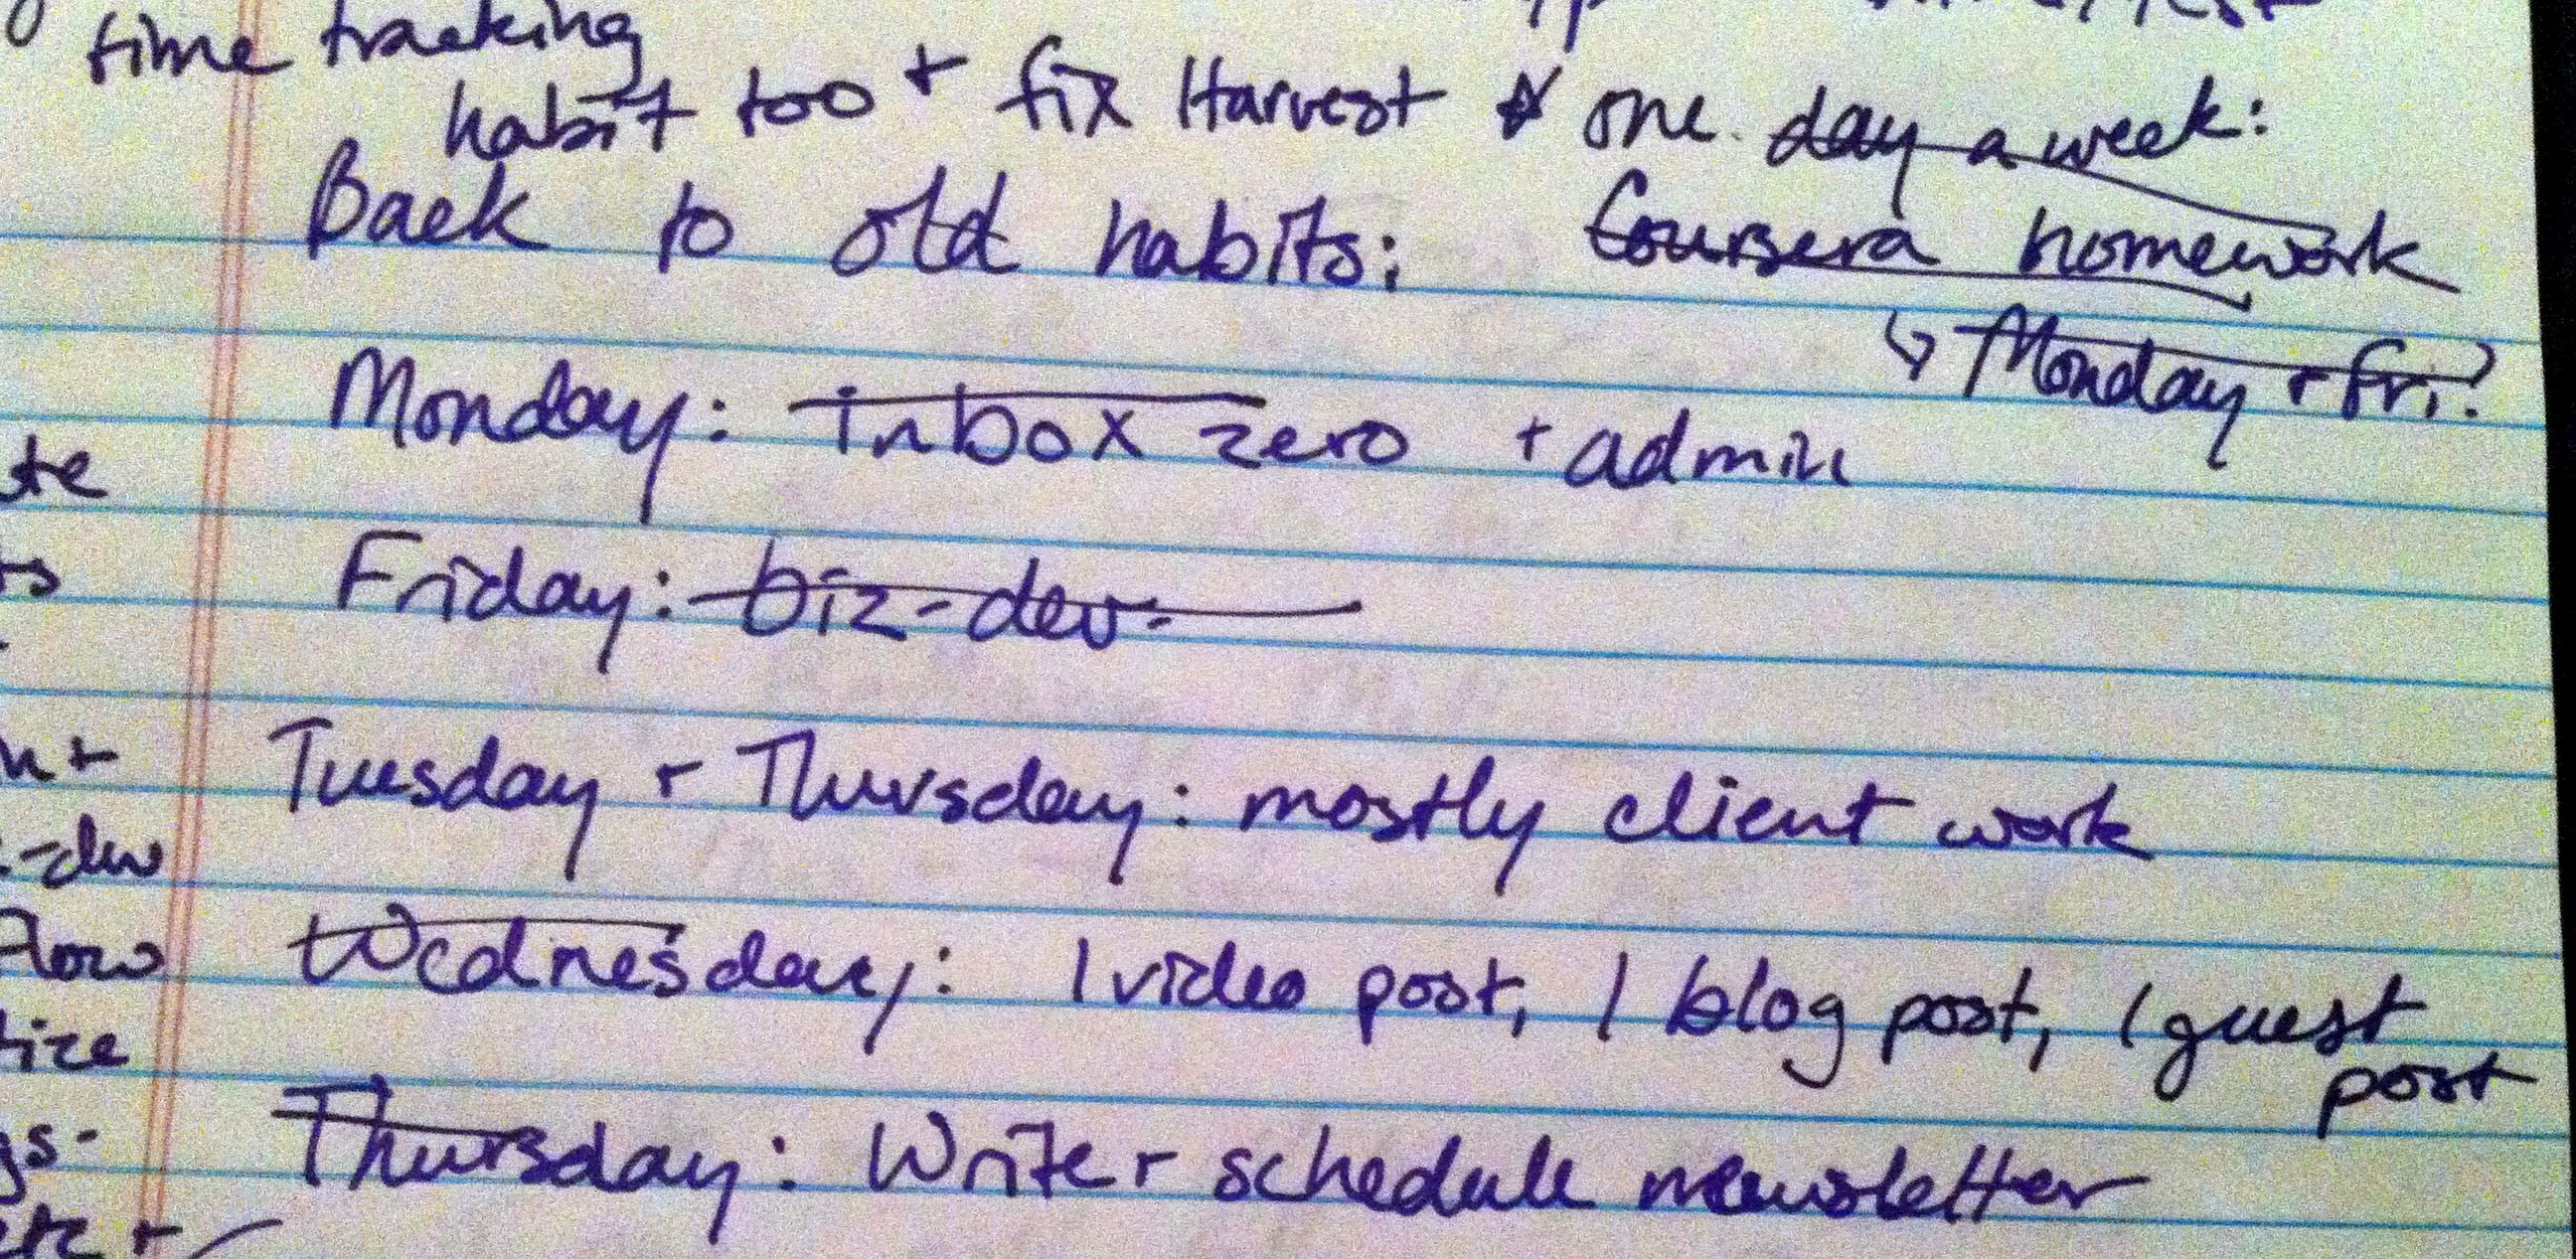 time tracking
habit too + fix Harvest
one day a week:
Coursera homework
↳ Monday + Fri?
Back to old habits:
Monday: inbox zero + admin
Friday: biz-dev
Tuesday + Thursday: mostly client work
Wednesday: 1 video post, 1 blog post, 1 guest
post
Thursday: Write + schedule newsletter